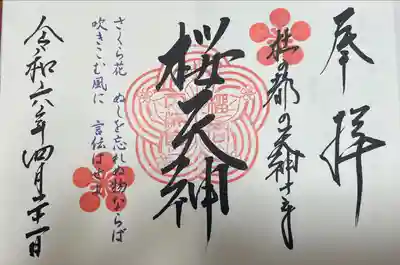 奉拝
杜の都の天神さま
桜天神
さくら花 ぬしを忘れぬ物ならば
吹きこむ風に 言伝はせよ
令和六年四月二十一日